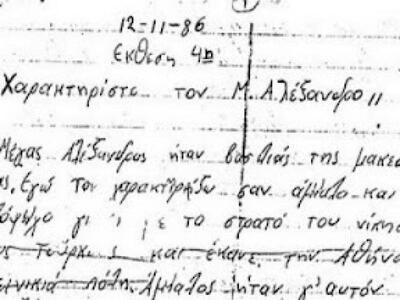 12-11-86
Εκθεση 4η
Χαρακτηρίστε τον Μ. Αλέξανδρο
Μέγας Αλέξανδρος ήταν βασιλιάς της μακε
ας. Εγώ τον χαρακτηρίζω σαν άμυαλο και
γι ε το στρατό του νίκησ
ς Τούρκους και έκανε την Αθήνα
πόλη. Αμυαλος ήταν γι' αυτόν